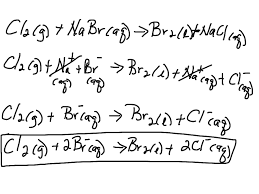 Cl₂(g) + NaBr(aq) → Br₂(l) + NaCl(aq)
Cl₂(g) + Na⁺(aq) + Br⁻(aq) → Br₂(l) + Na⁺(aq) + Cl⁻(aq)
Cl₂(g) + Br⁻(aq) → Br₂(l) + Cl⁻(aq)
Cl₂(g) + 2Br⁻(aq) → Br₂(l) + 2Cl⁻(aq)